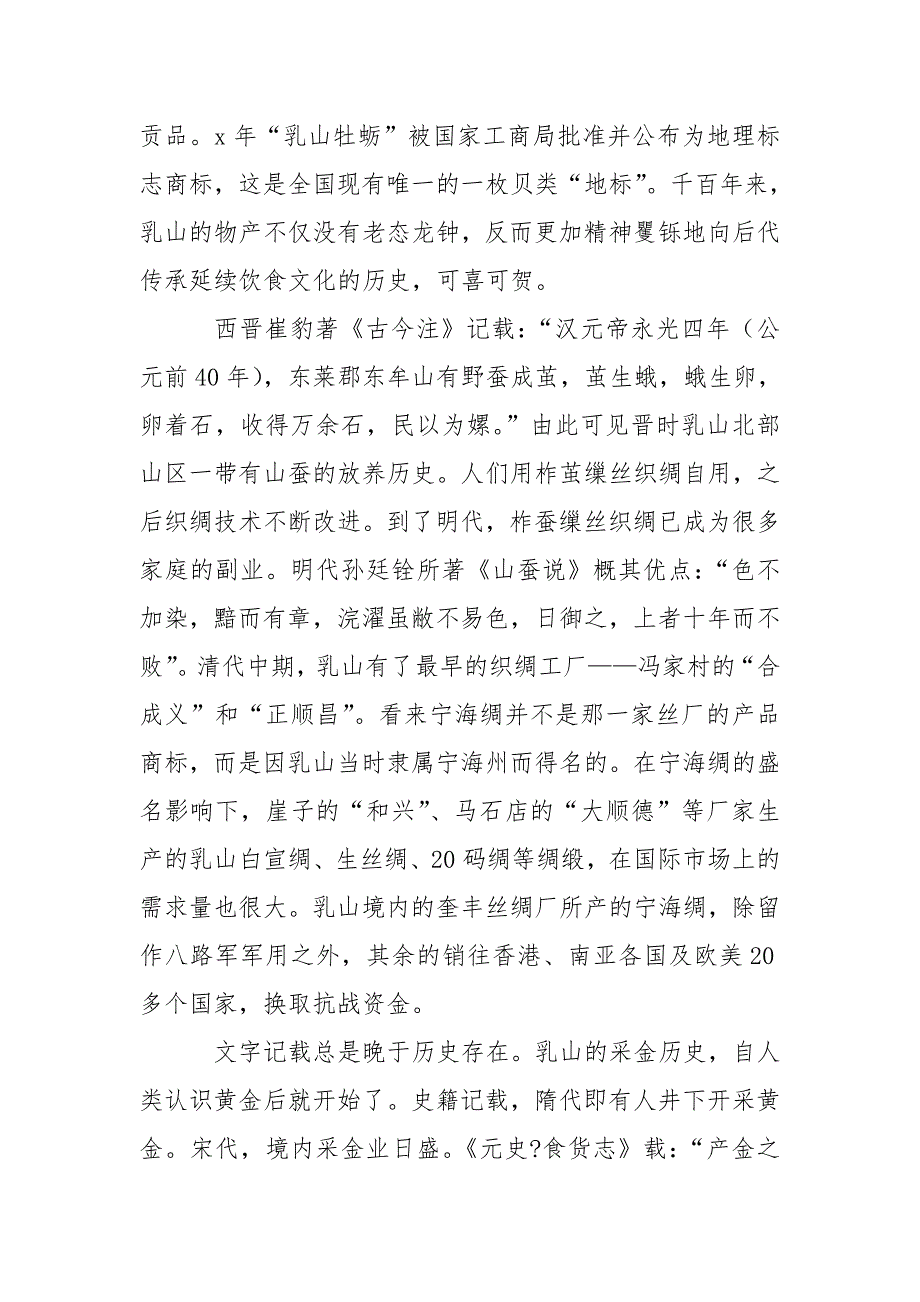 贡品。x 年“乳山牡蛎”被国家工商局批准并公布为地理标
志商标，这是全国现有唯一的一枚贝类“地标”。千百年来，
乳山的物产不仅没有老态龙钟，反而更加精神矍铄地向后代
传承延续饮食文化的历史，可喜可贺。
西晋崔豹著《古今注》记载：“汉元帝永光四年（公
元前 40 年），东莱郡东牟山有野蚕成茧，茧生蛾，蛾生卵，
卵着石，收得万余石，民以为嫘。”由此可见晋时乳山北部
山区一带有山蚕的放养历史。人们用柞茧缫丝织绸自用，之
后织绸技术不断改进。到了明代，柞蚕缫丝织绸已成为很多
家庭的副业。明代孙廷铨所著《山蚕说》概其优点：“色不
加染，黯而有章，浣濯虽敝不易色，日御之，上者十年而不
败”。清代中期，乳山有了最早的织绸工厂——冯家村的“合
成义”和“正顺昌”。看来宁海绸并不是那一家丝厂的产品
商标，而是因乳山当时隶属宁海州而得名的。在宁海绸的盛
名影响下，崖子的“和兴”、马石店的“大顺德”等厂家生
产的乳山白宣绸、生丝绸、20 码绸等绸缎，在国际市场上的
需求量也很大。乳山境内的奎丰丝绸厂所产的宁海绸，除留
作八路军军用之外，其余的销往香港、南亚各国及欧美 20
多个国家，换取抗战资金。
文字记载总是晚于历史存在。乳山的采金历史，自人
类认识黄金后就开始了。史籍记载，隋代即有人井下开采黄
金。宋代，境内采金业日盛。《元史?食货志》载：“产金之